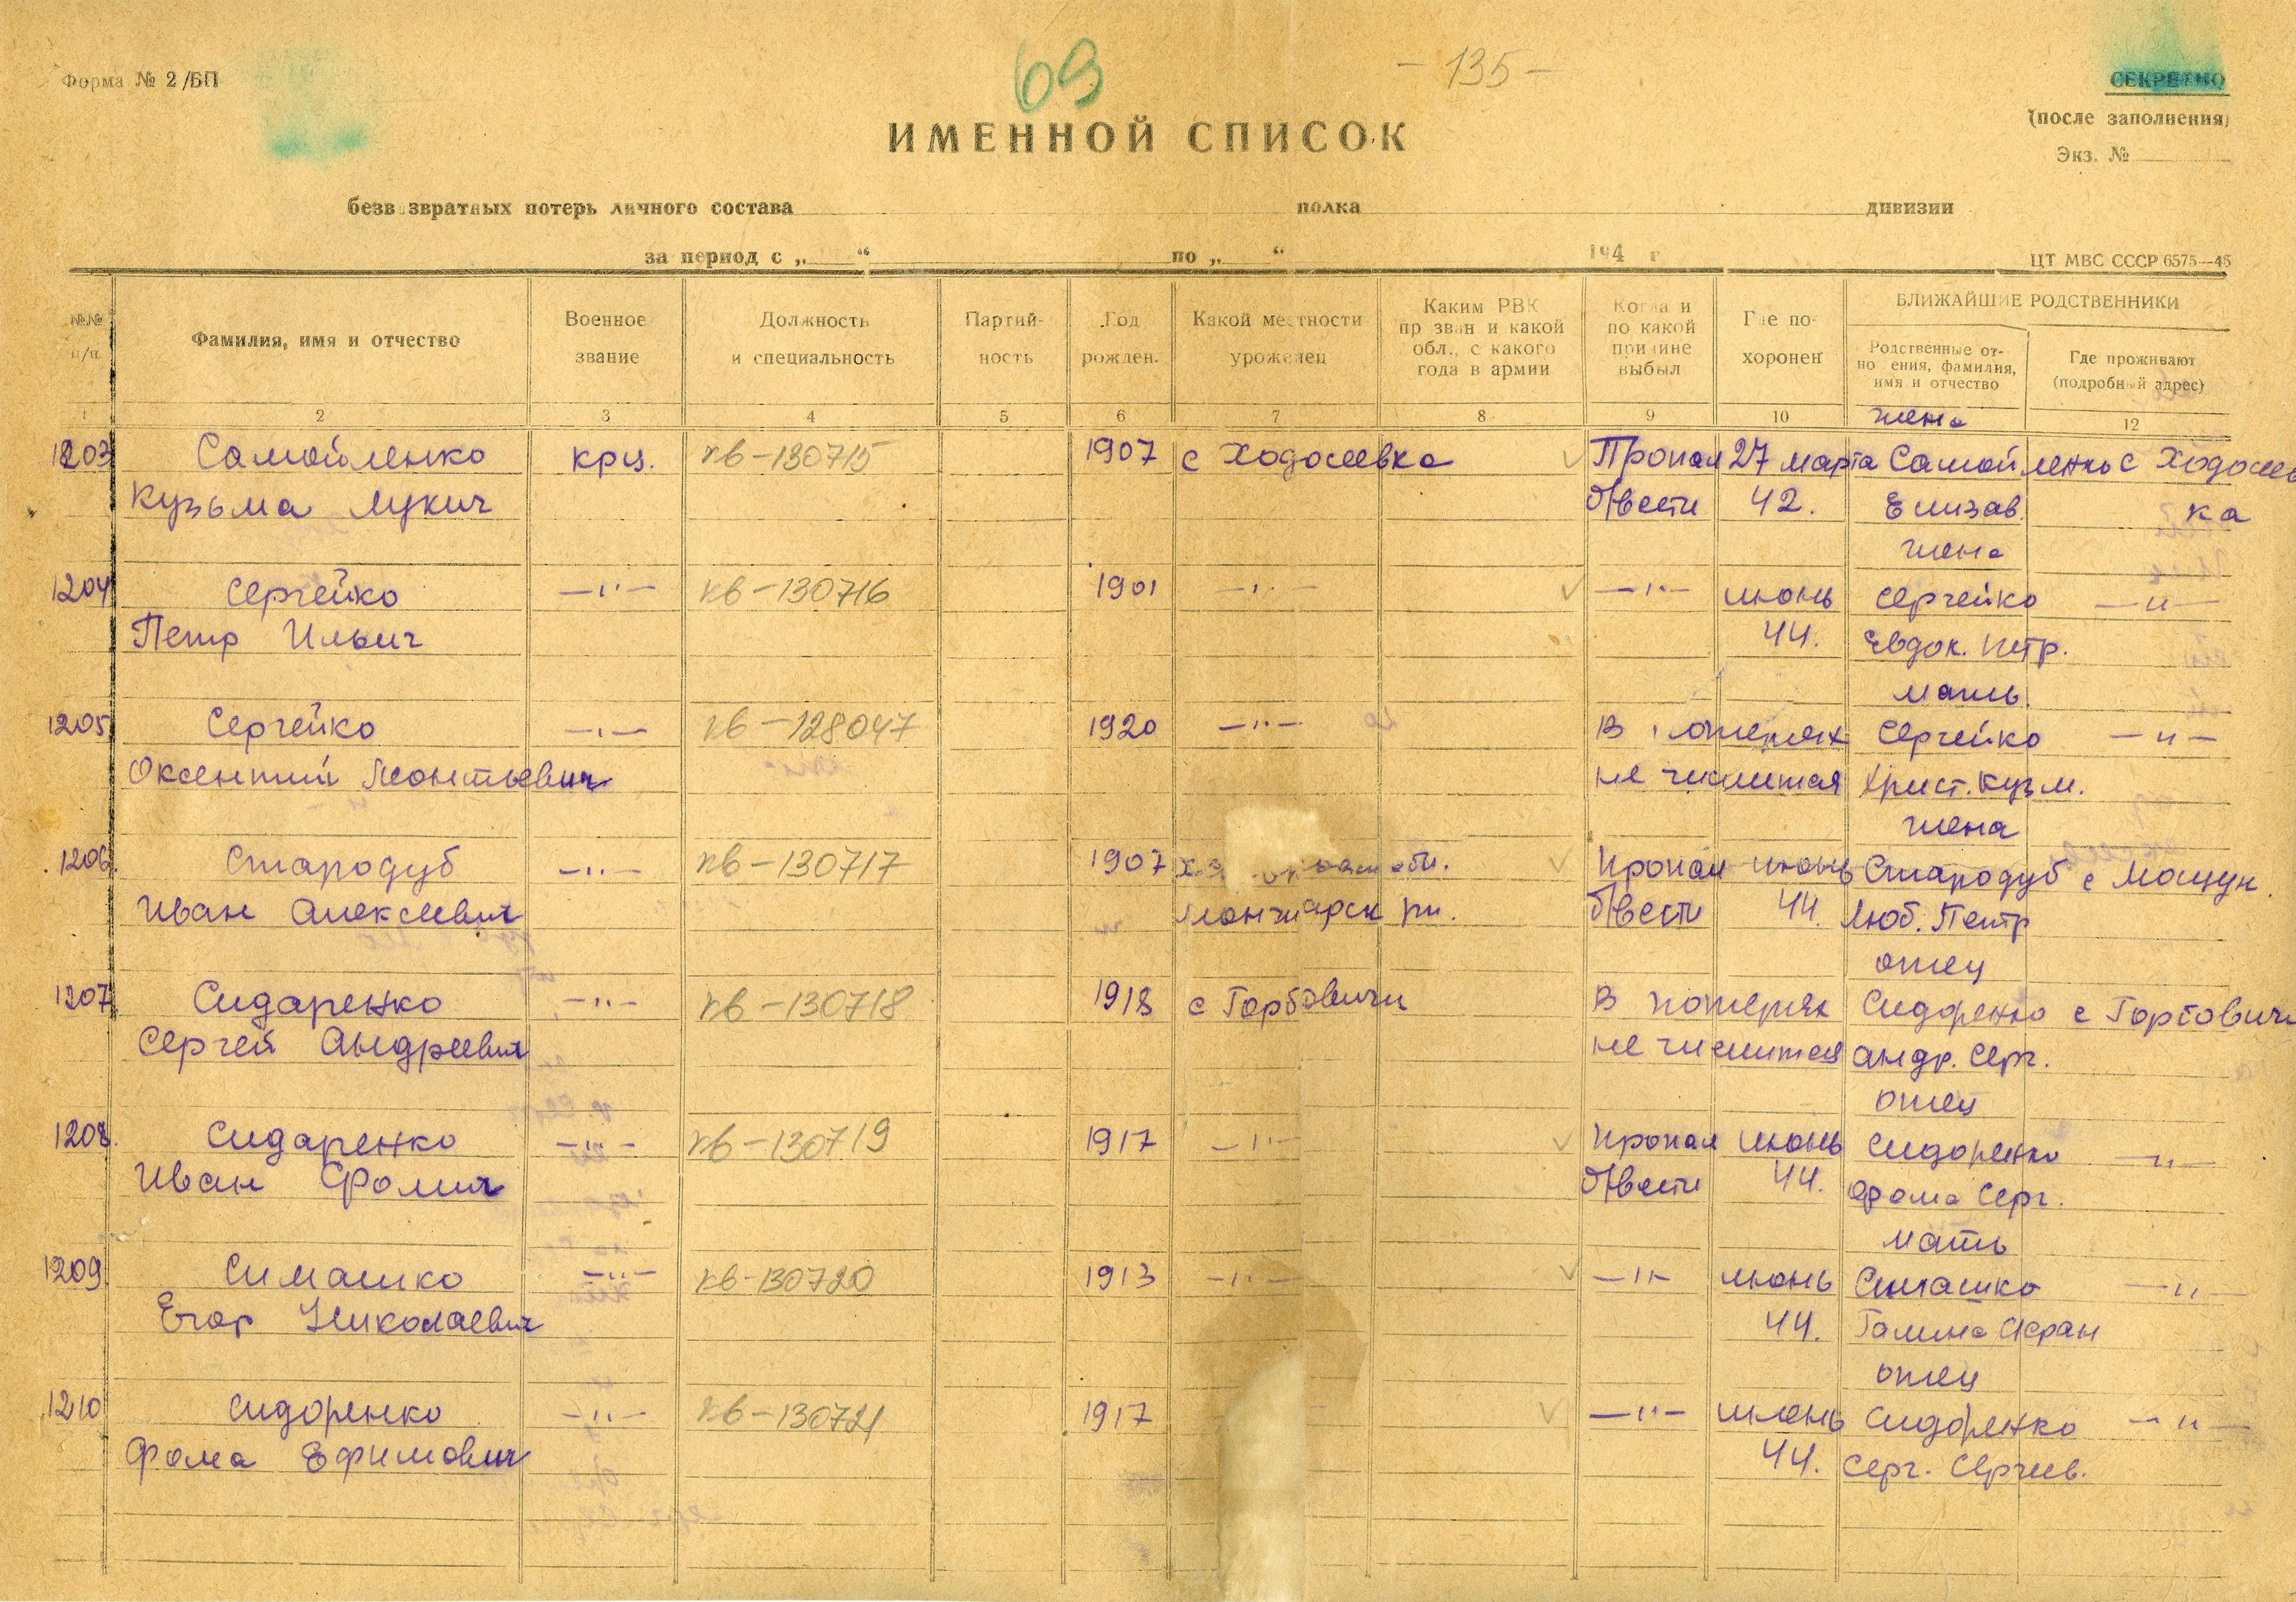 Форма № 2/БП
69
- 135 -
СЕКРЕТНО
(после заполнения)
Экз. №
ИМЕННОЙ СПИСОК
безв звратных потерь личного состава полка дивизии
за период с „ “ по „ “ 194 г
ЦТ МВС СССР 6575—45
№№ п/п.
Фамилия, имя и отчество
Военное звание
Должность и специальность
Партий- ность
Год рожден.
Какой местности уроженец
Каким РВК пр зван и какой обл., с какого года в армии
Когда и по какой причине выбыл
Где по- хоронен
БЛИЖАЙШИЕ РОДСТВЕННИКИ
Родственные от- но ения, фамилия, имя и отчество
Где проживают (подробный адрес)
1 2 3 4 5 6 7 8 9 10 12
жена
1203 Самойленко крц. кв-130715 1907 с Ходосеевка Пропал 27 марта Самойленко с Ходосеев
Кузьма Лукич б/вести 42. Елизав. ка
жена
1204 Сергейко —"— кв-130716 1901 —"— —"— июнь Сергейко —"—
Петр Ильич 44. Евдок. Петр.
мать.
1205 Сергейко —"— кв-128047 1920 —"— В потерях Сергейко —"—
Оксентий Леонтьевич не числится Христ. Кузм.
жена
1206. Стародуб —"— кв-130717 1907 обл. Пропал июнь Стародуб с Мощун.
Иван Алексеевич рн. б/вести 44. Люб. Петр
отец
1207 Сидаренко —"— кв-130718 1918 с Горбовичи В потерях Сидоренко с Горбовичи
Сергей Андреевич не числится Андр. Серг.
отец
1208. Сидаренко —"— кв-130719 1917 —"— Пропал июнь Сидоренко —"—
Иван Фомич б/вести 44. Фома Серг.
мать
1209. Симашко —"— кв-130720 1913 —"— —"— июнь Симашко —"—
Егор Николаевич 44. Галина
отец
1210 Сидоренко —"— кв-130721 1917 —"— июнь Сидоренко —"—
Фома Ефимович 44. Серг. Сергеев.